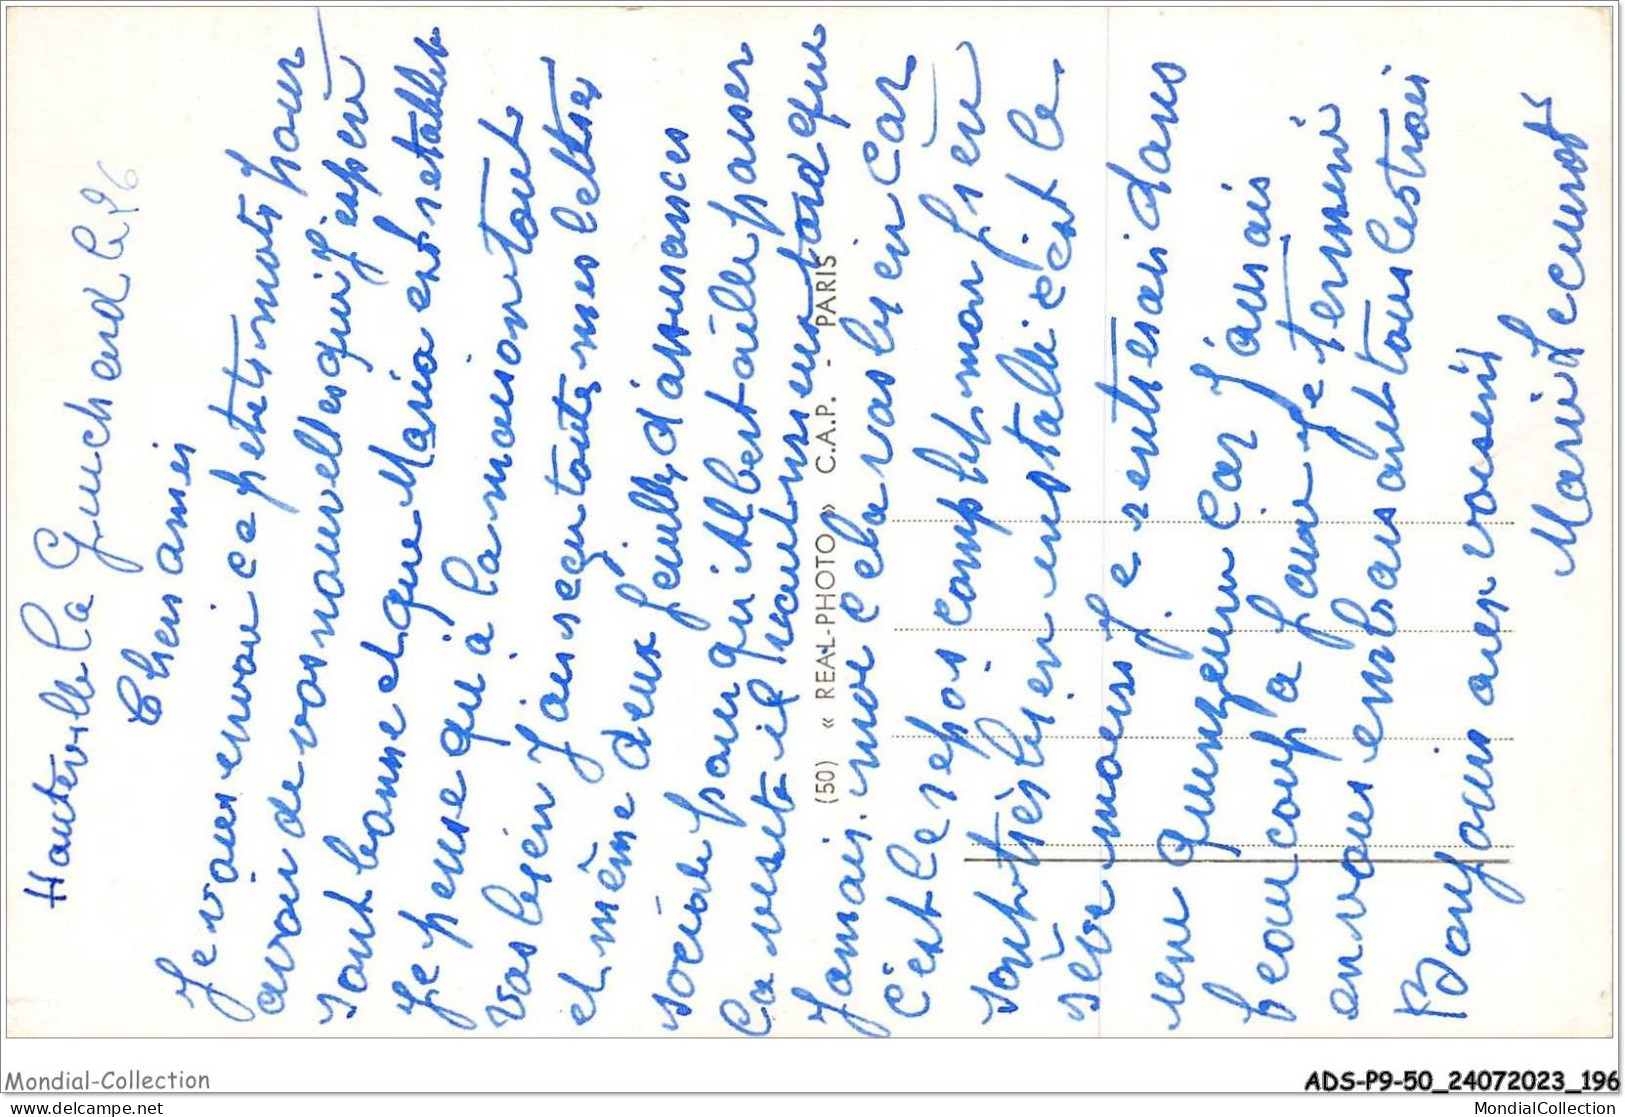 Hauteville la Guichard le 26
Chers amis
Je vous envoie ce petits mots pour
avoir de vos nouvelles qui j'espère
sont bonne et que Maria est retablet
Je pense qui à la maison tout
vas bien J'ais reçu toute mes lettres
et même deux feuille d'assurances
sociale pour qui Albert aille passer
La visite il
Jamais. moi cha vas bien car
C'est le repos complet mon frère
sont très bien installé c'est le
rêve moi Je rentrerai dans
une quinzeine car J'aurais
beaucoup a faire Je termine
en vous embrasant tous les trois
Bonjour aux voisins
Marie Lecunot
(50) « REAL-PHOTO » C.A.P. - PARIS
Mondial-Collection
ADS-P9-50_24072023_196
Mondial-Collection.com
MondialCollection